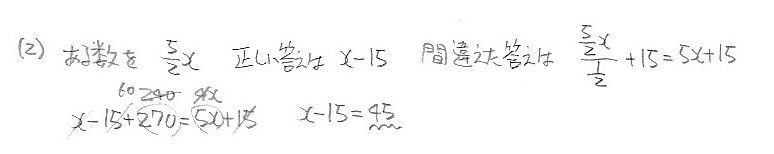 (2) ある数を 5/2x 正しい答えは x-15 間違えた答えは 5/2x / 1/2 +15=5x+15
60 240 4x
x-15+270=5x+15 x-15=45